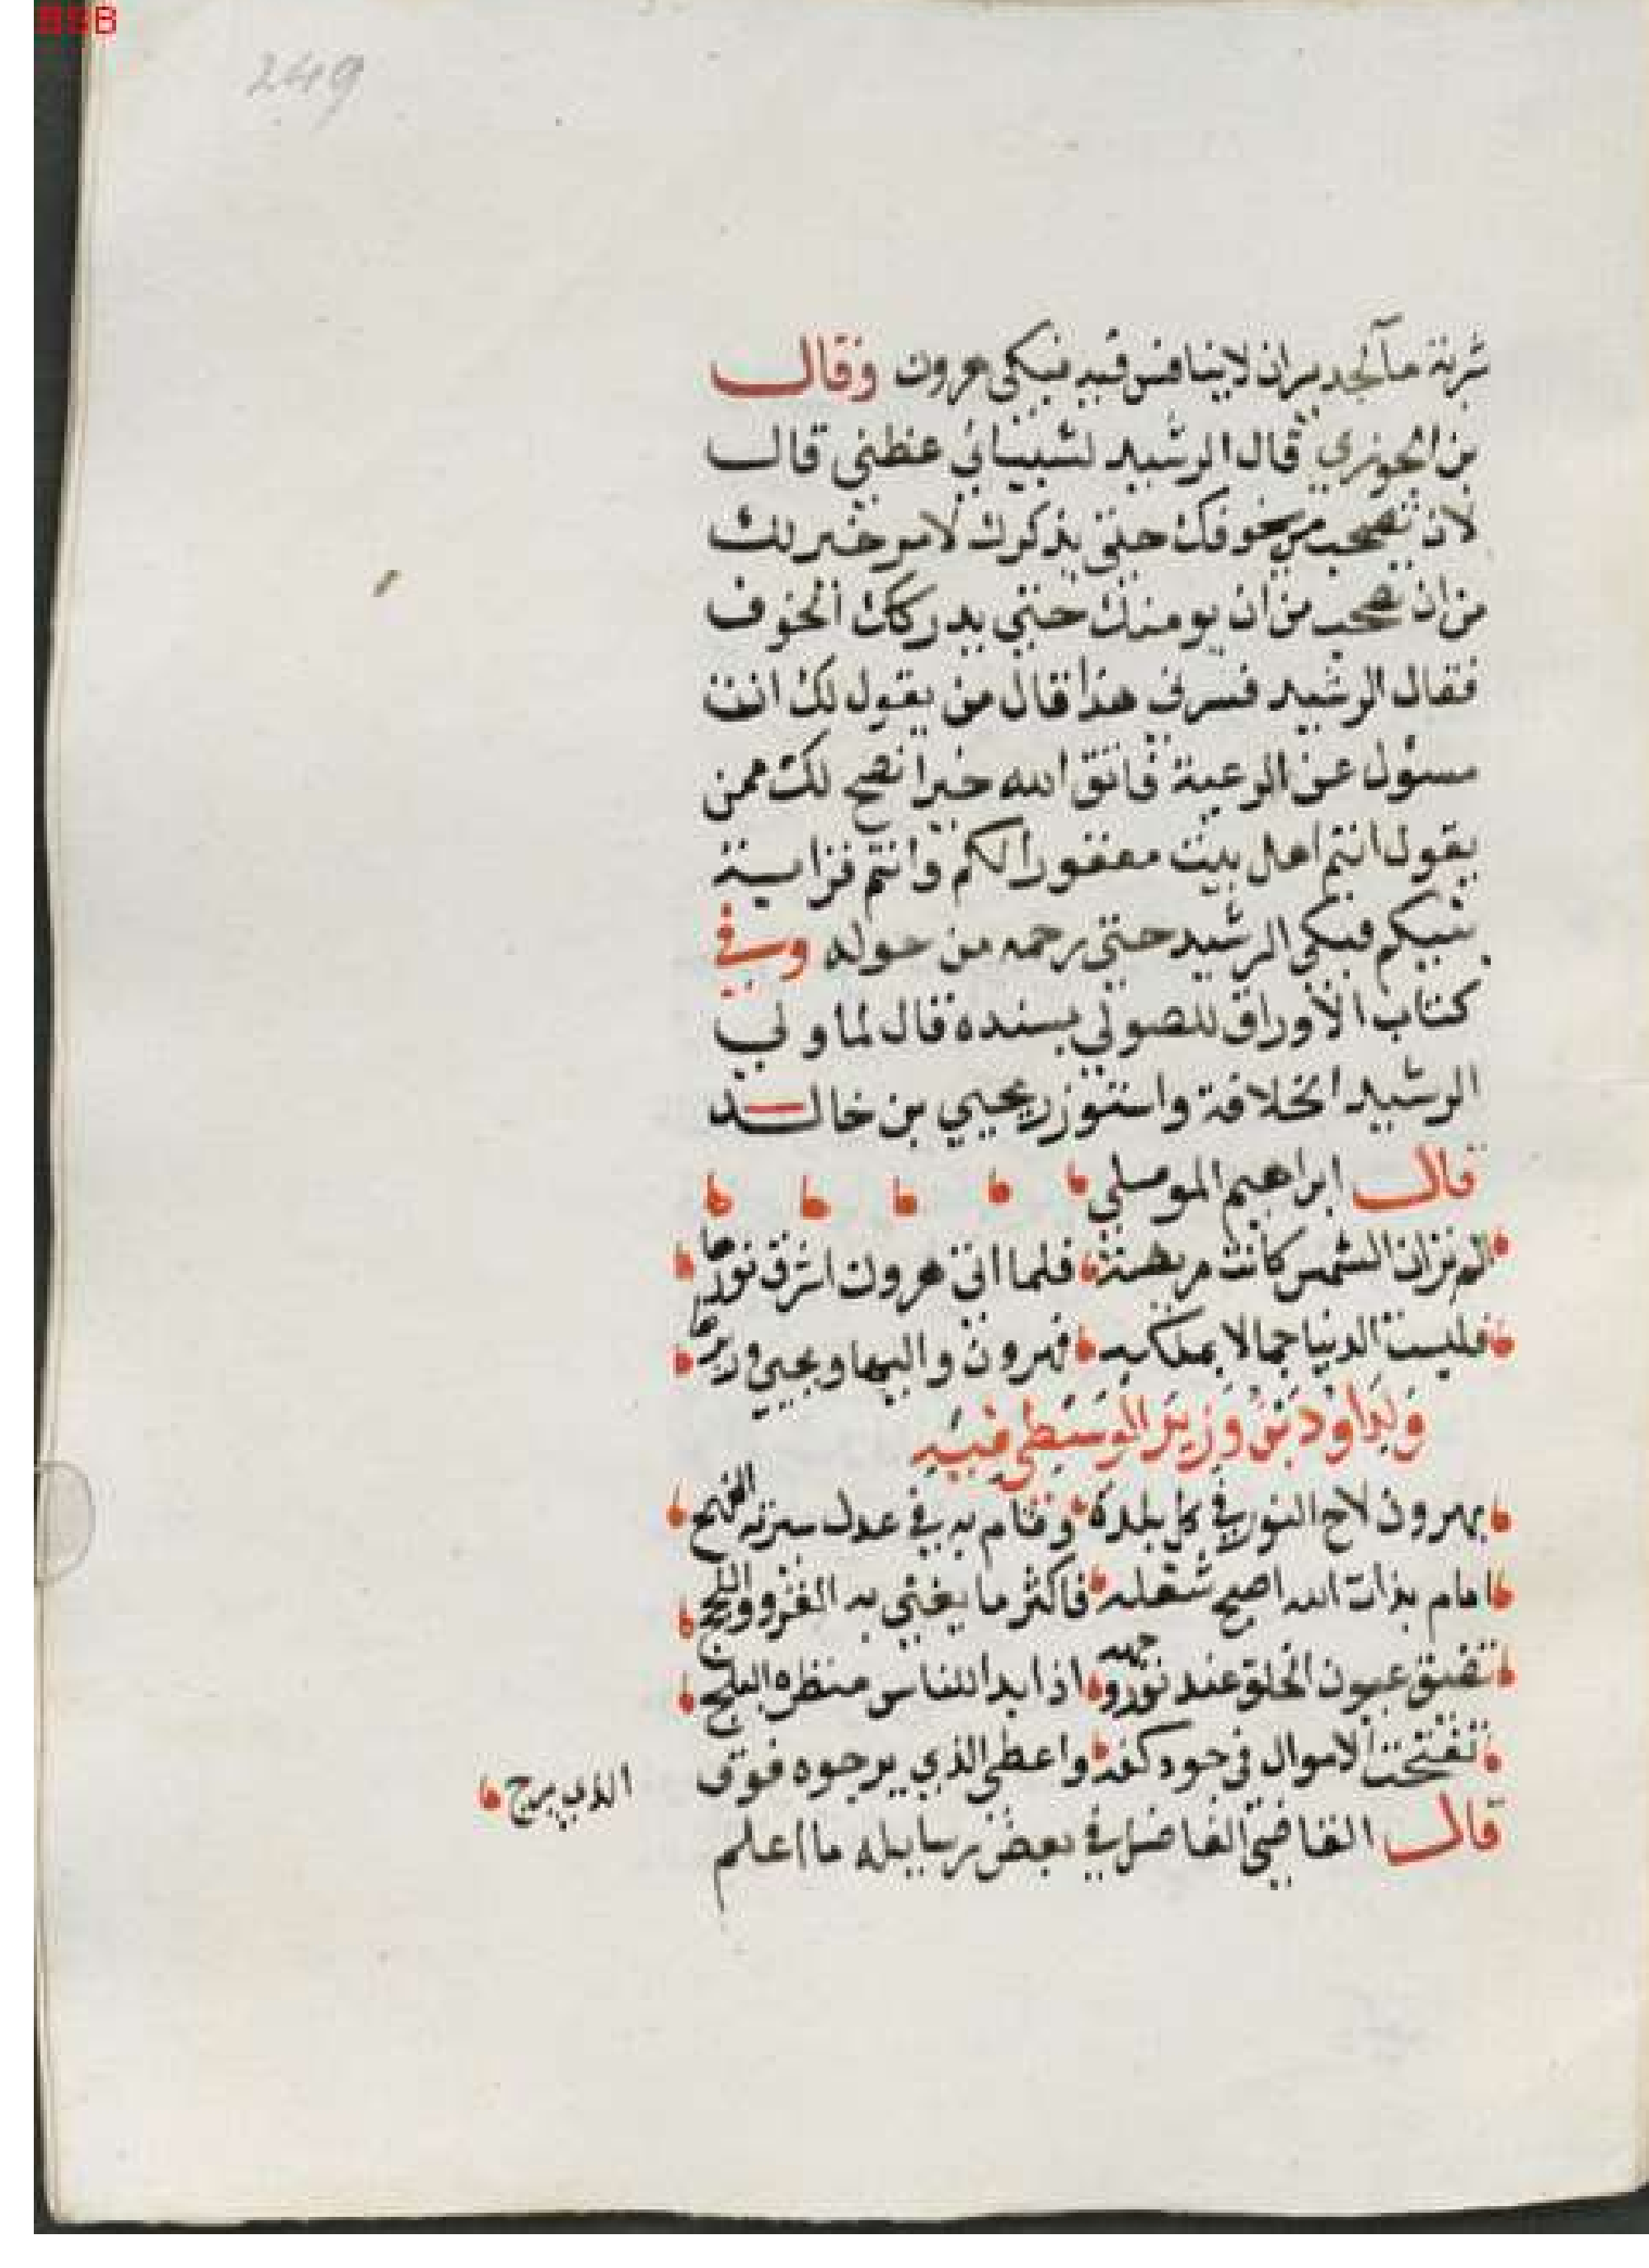 249
شربة مآ لجدير ان لاينافس فيه فبكى هرون وقال
بن الجوزي قال الرشيد لشيباني عظني قال
لان تصحب من يخوفك حتى يذكرك لامر خير لك
من ان تصحب من ان يومنك حتى يدركك الخوف
فقال الرشيد فسرني هذا قال من يقول لك انت
مسؤل عن الرعية فاتق الله خيرا نصح لك ممن
يقول انتم اهل بيت مغفورا لكم وانتم قرابة
نبيكم فبكى الرشيد حتى رحمه من حوله وفي
كتاب الاوراق للصولي بسنده قال لما ولي
الرشيد الخلافة واستوزر يحيي بن خالد
قال ابراهيم الموصلي
الم تر ان الشمس كانت مريضة فلما اتى هرون اشرق نورها
فليست الدنيا جمالا بملكه فهرون واليها ويحيي وزيرها
ولداود بن وزير الوسطي فيه
بهرون لاح النور في كل بلدة وقام به في عدل سيرته النهج
امام بذات الله اصبح شغله فاكثر ما يغني به الغزو والحج
تضيق عيون الخلق عند نور وجهه اذا بدا للناس منظره البلج
تفتحت الاموال في جود كفه واعطى الذي يرجوه فوق
الذي يرج
قال القاضي الفاضل في بعض رسايله ما اعلم